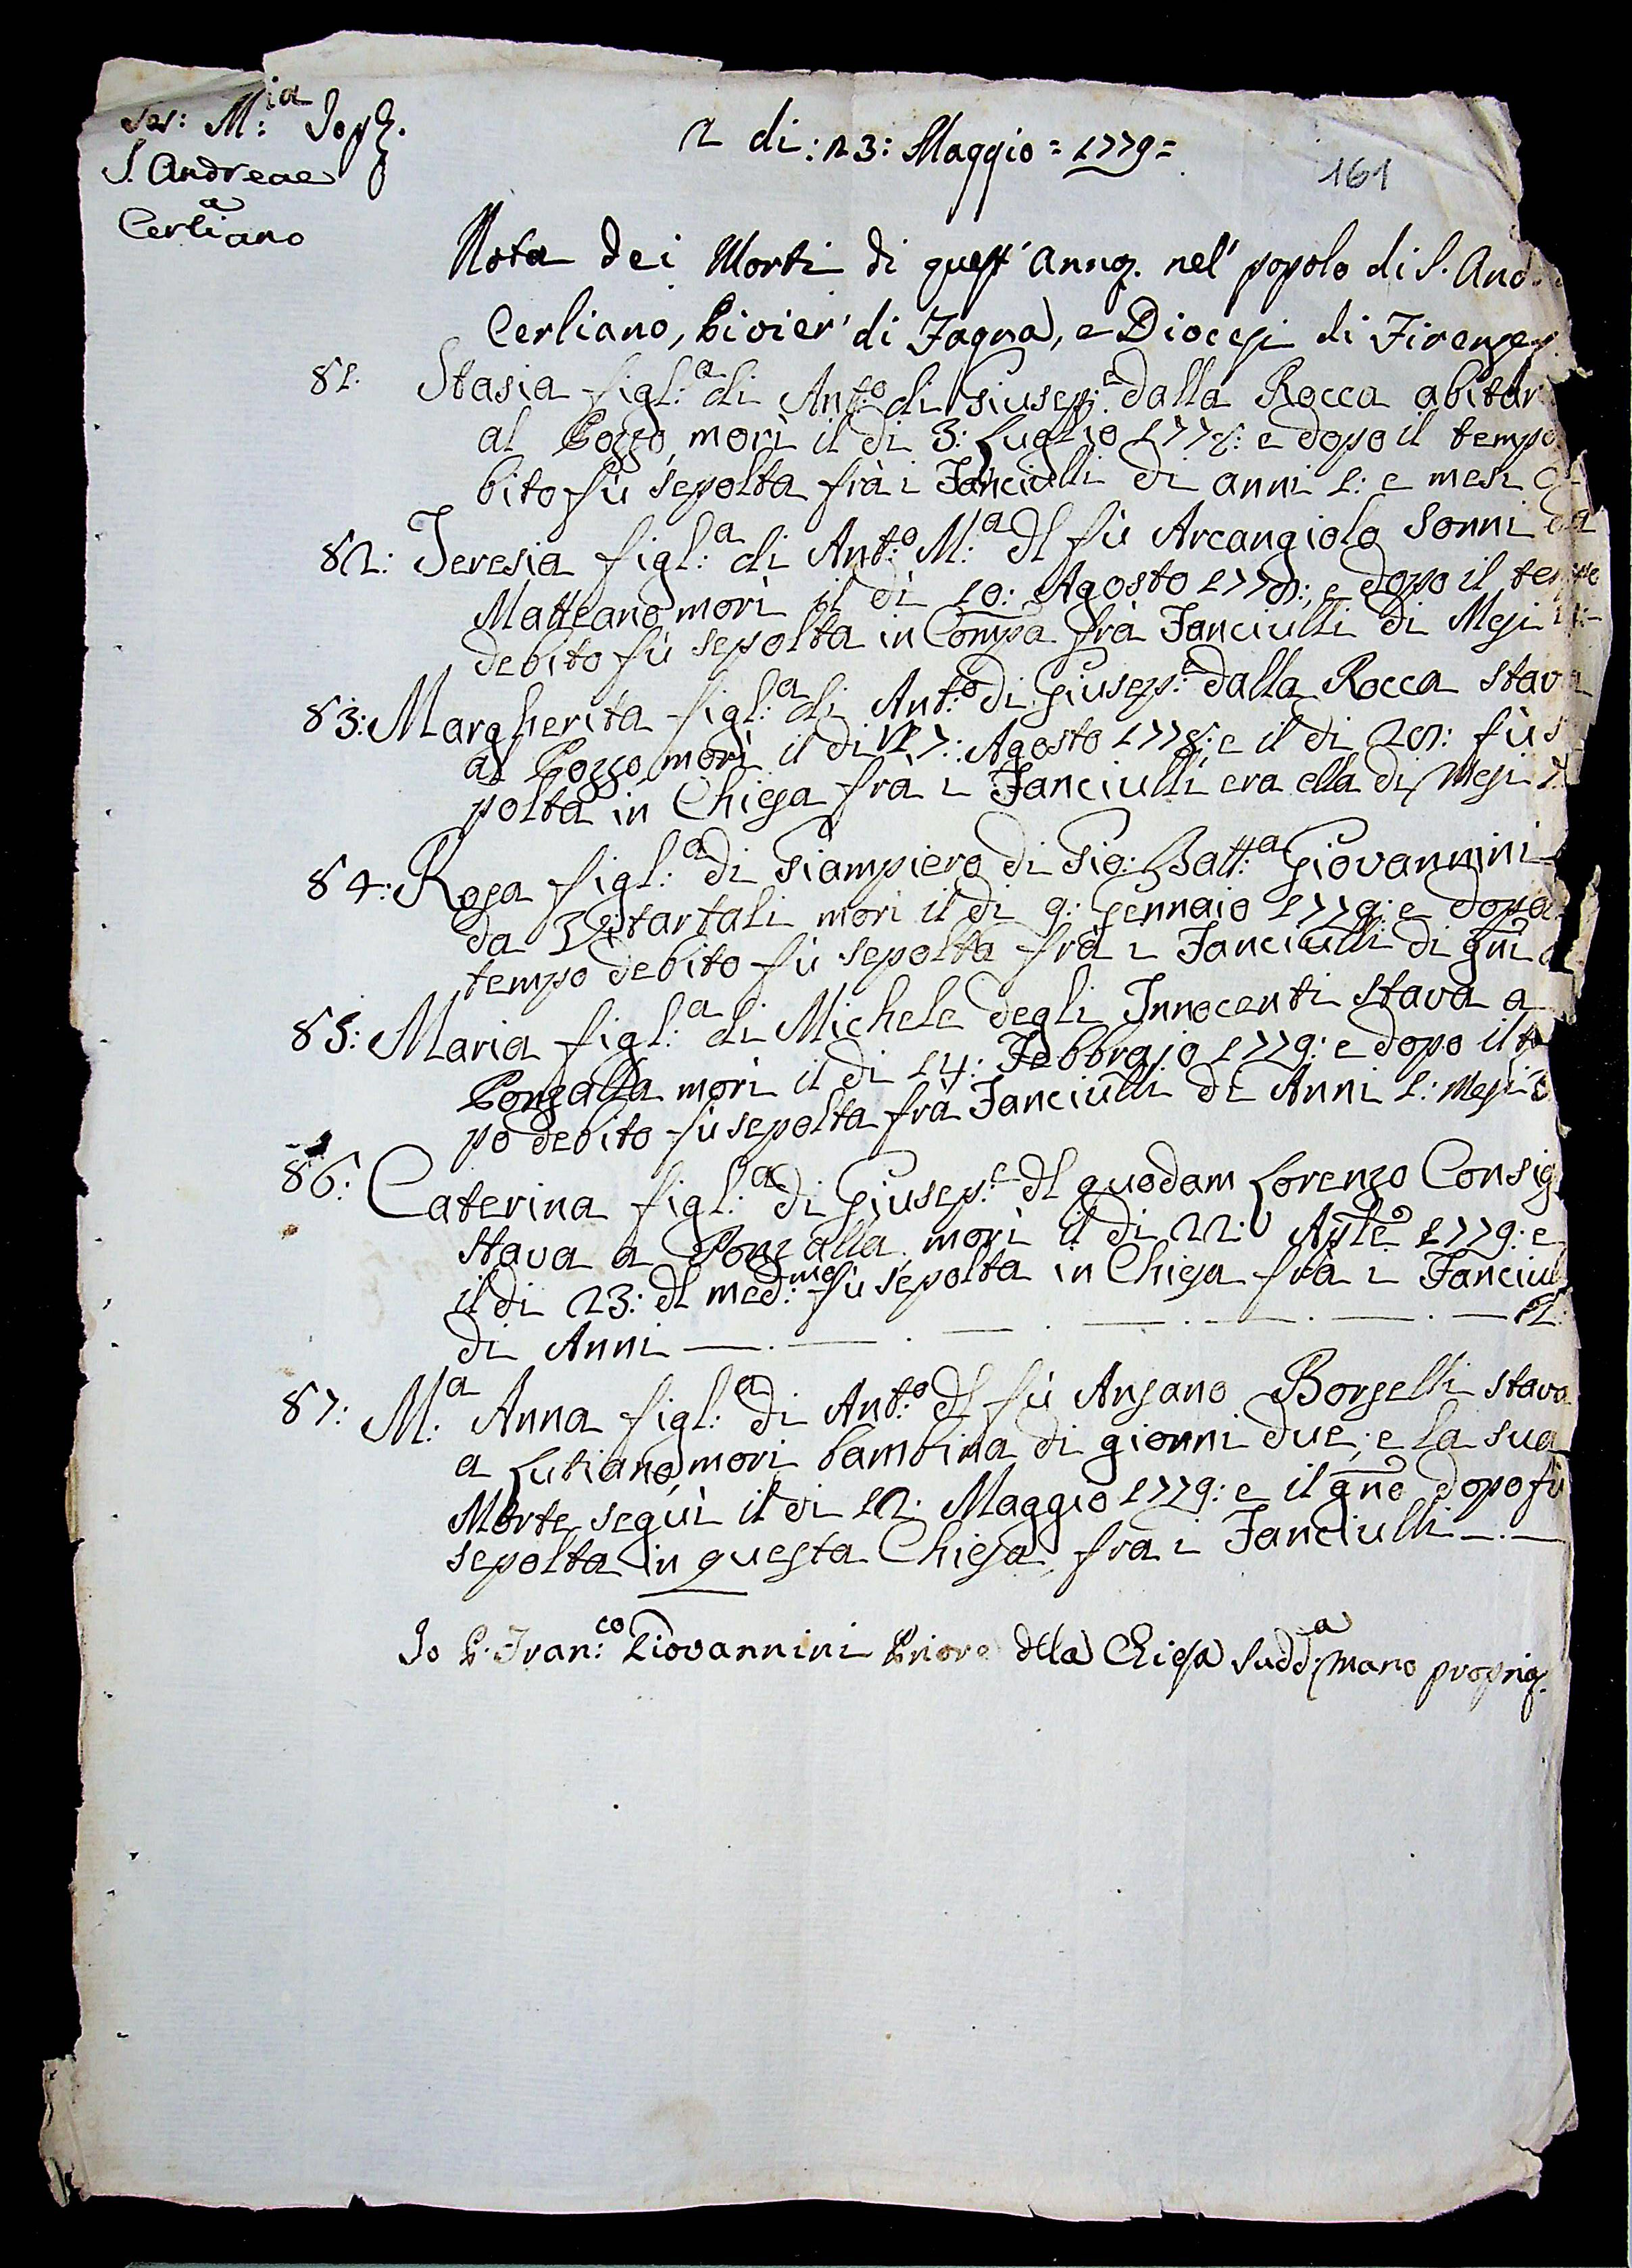 Jes: M:ia Jos
S. Andreae
a
Cerliano
A di: 23: Maggio = 1779 =
161
Nota dei Morti di quest' anno nel' popolo di S. And
Cerliano, Pivier' di Fagna, e Diocesi di Firenze
81. Stasia figl:a di Ant:o di Giusep:e dalla Rocca abitar
al Pozzo morì il di 3: Luglio 1778: e dopo il tempo
bito fù sepolta frà i Fanciulli di anni 1: e mesi
82: Teresia figl:a di Ant:o M:a dl fù Arcangiolo Sonni da
Matteano morì il dì 10: Agosto 1778: e dopo il tempo
debito fù sepolta in Compa frà Fanciulli di Mesi
83: Margherita figl:a di Ant:o di Giusep:e dalla Rocca stava
al Pozzo morì il di 27: Agosto 1778: e il di 28: fù s
polta in Chiesa frà i Fanciulli era ella di Mesi
84: Rosa figl:a di Giampiero di Gio: Batt:a Giovannini
da mori il di 9: Gennaio 1779: e dopo
tempo debito fù sepolta frà i Fanciulli di gni
85: Maria figl:a di Michele degli Innocenti stava a
Ponzalla morì il di 14: Febbrajo 1779: e dopo il te
po debito fù sepolta frà Fanciulli di Anni 1: Mesi
86: Caterina figl:a di Giusep:e dl quodam Lorenzo Consig
stava a Ponzalla morì il di 22: Aple 1779: e
il di 23: dl med:mo fù sepolta in Chiesa frà i Fanciul
di Anni — . — . — . — . — . — 2:
87: M:a Anna figl:a di Ant:o dl fù Ansano Borselli stava
a Lutiano, mori bambina di giorni due; e la sua
Morte seguì il di 12: Maggio 1779: e il gno dopo fù
sepolta in questa Chiesa frà i Fanciulli — . —
Io P. Fran:co Giovannini Priore dlla Chiesa Sudd:a mano propria